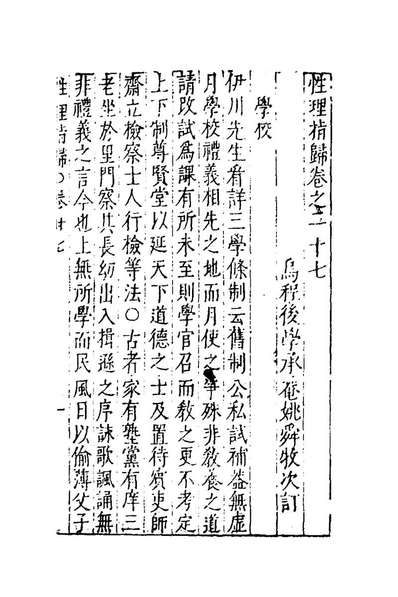 性理指歸卷之二十七
烏程後學承菴姚舜牧次訂
學校
伊川先生看詳三學條制云舊制公私試補蓋無虛
月學校禮義相先之地而月使之爭殊非教養之道
請改試爲課有所未至則學官召而教之更不考定
上下制尊賢堂以延天下道德之士及置待賓吏師
齋立檢察士人行檢等法○古者家有塾黨有庠三
老坐於里門察其長幼出入揖遜之序詠歌諷誦無
非禮義之言今也上無所學而民風日以偷薄父子
性理指歸○卷廿七
一